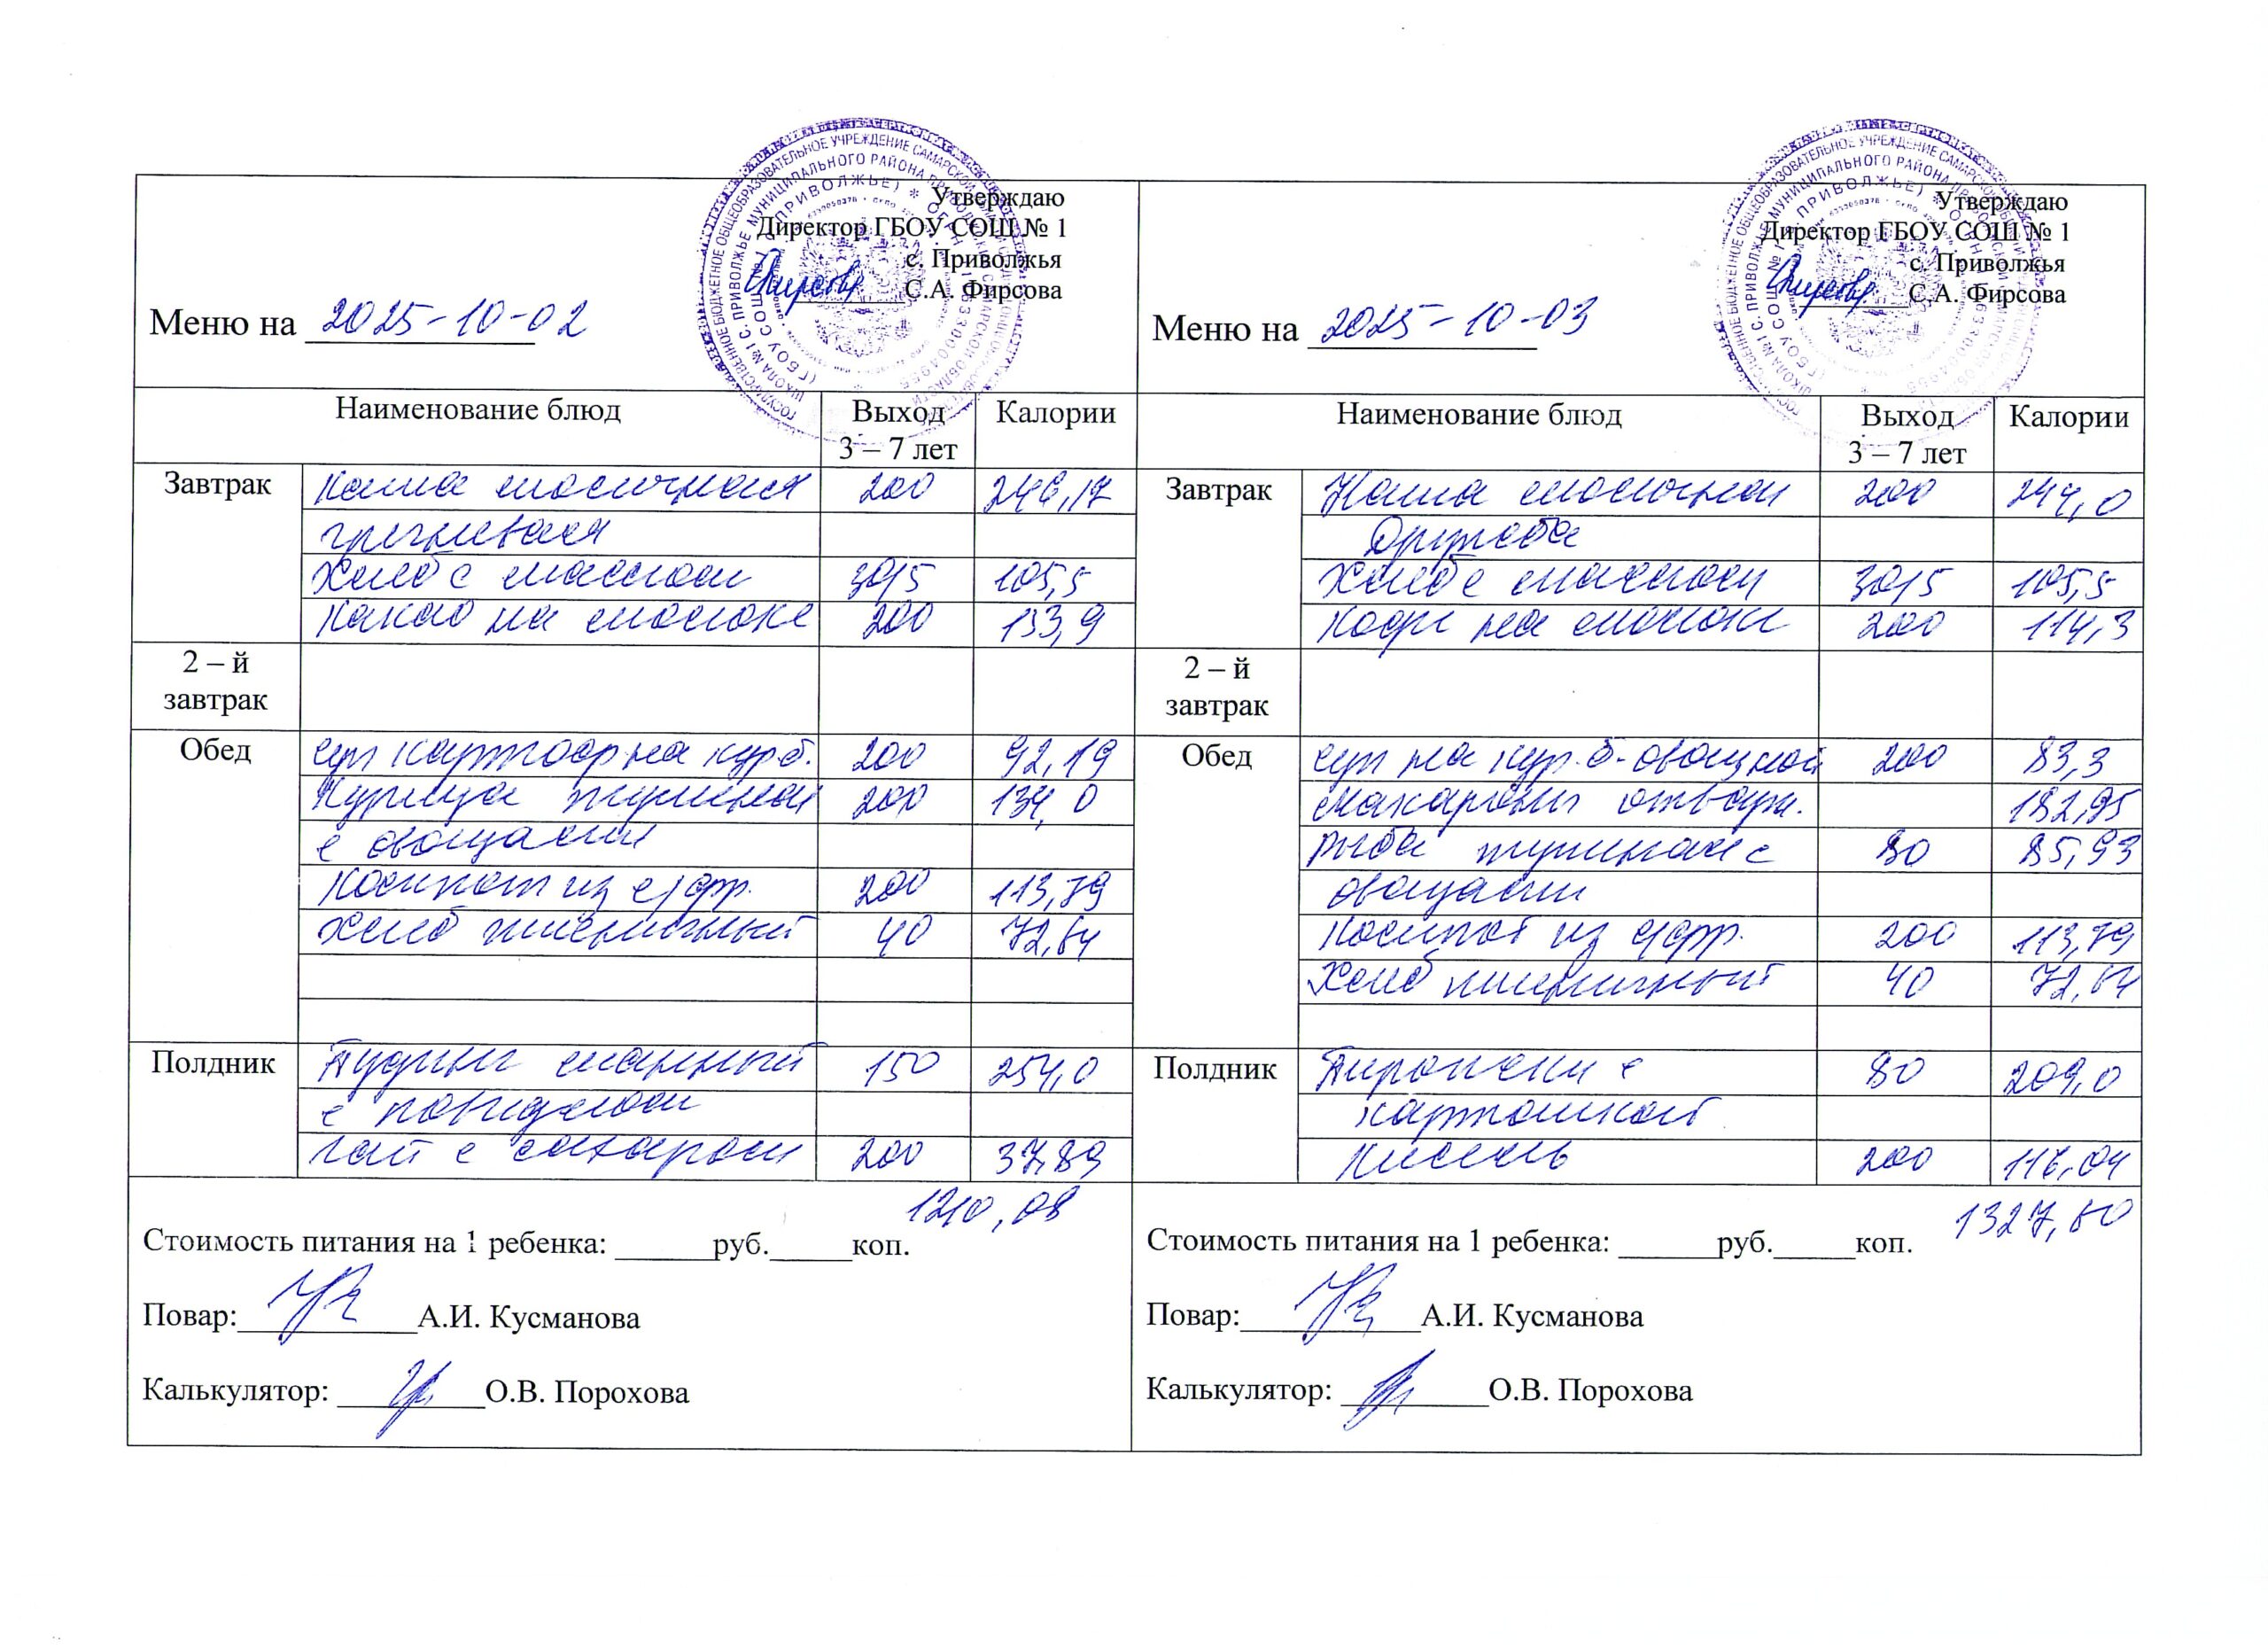 Утверждаю
Директор ГБОУ СОШ № 1
с. Приволжья
С.А. Фирсова
Меню на 2025-10-02
Наименование блюд Выход 3 – 7 лет Калории
Завтрак Каша молочная 200 246,17
гречневая
Хлеб с маслом 30/5 105,5
Какао на молоке 200 133,9
2 – й завтрак
Обед суп картоф на кур б. 200 92,19
Курица тушеная 200 134,0
с овощами
Компот из с/фр. 200 113,79
Хлеб пшеничный 40 72,64
Полдник Пудинг манный 150 254,0
с повидлом
Чай с сахаром 200 37,89
1210,08
Стоимость питания на 1 ребенка: ______руб._____коп.
Повар: А.И. Кусманова
Калькулятор: О.В. Порохова
Утверждаю
Директор ГБОУ СОШ № 1
с. Приволжья
С.А. Фирсова
Меню на 2025-10-03
Наименование блюд Выход 3 – 7 лет Калории
Завтрак Каша молочная 200 244,0
Дружба
Хлеб с маслом 30/5 105,5
Кофе на молоке 200 114,3
2 – й завтрак
Обед суп на кур.б-овощной 200 83,3
макароны отвар. 182,95
рыба тушеная с 80 85,93
овощами
Компот из с/фр. 200 113,79
Хлеб пшеничный 40 72,64
Полдник Пирожки с 80 209,0
картошкой
Кисель 200 116,04
1327,60
Стоимость питания на 1 ребенка: ______руб._____коп.
Повар: А.И. Кусманова
Калькулятор: О.В. Порохова